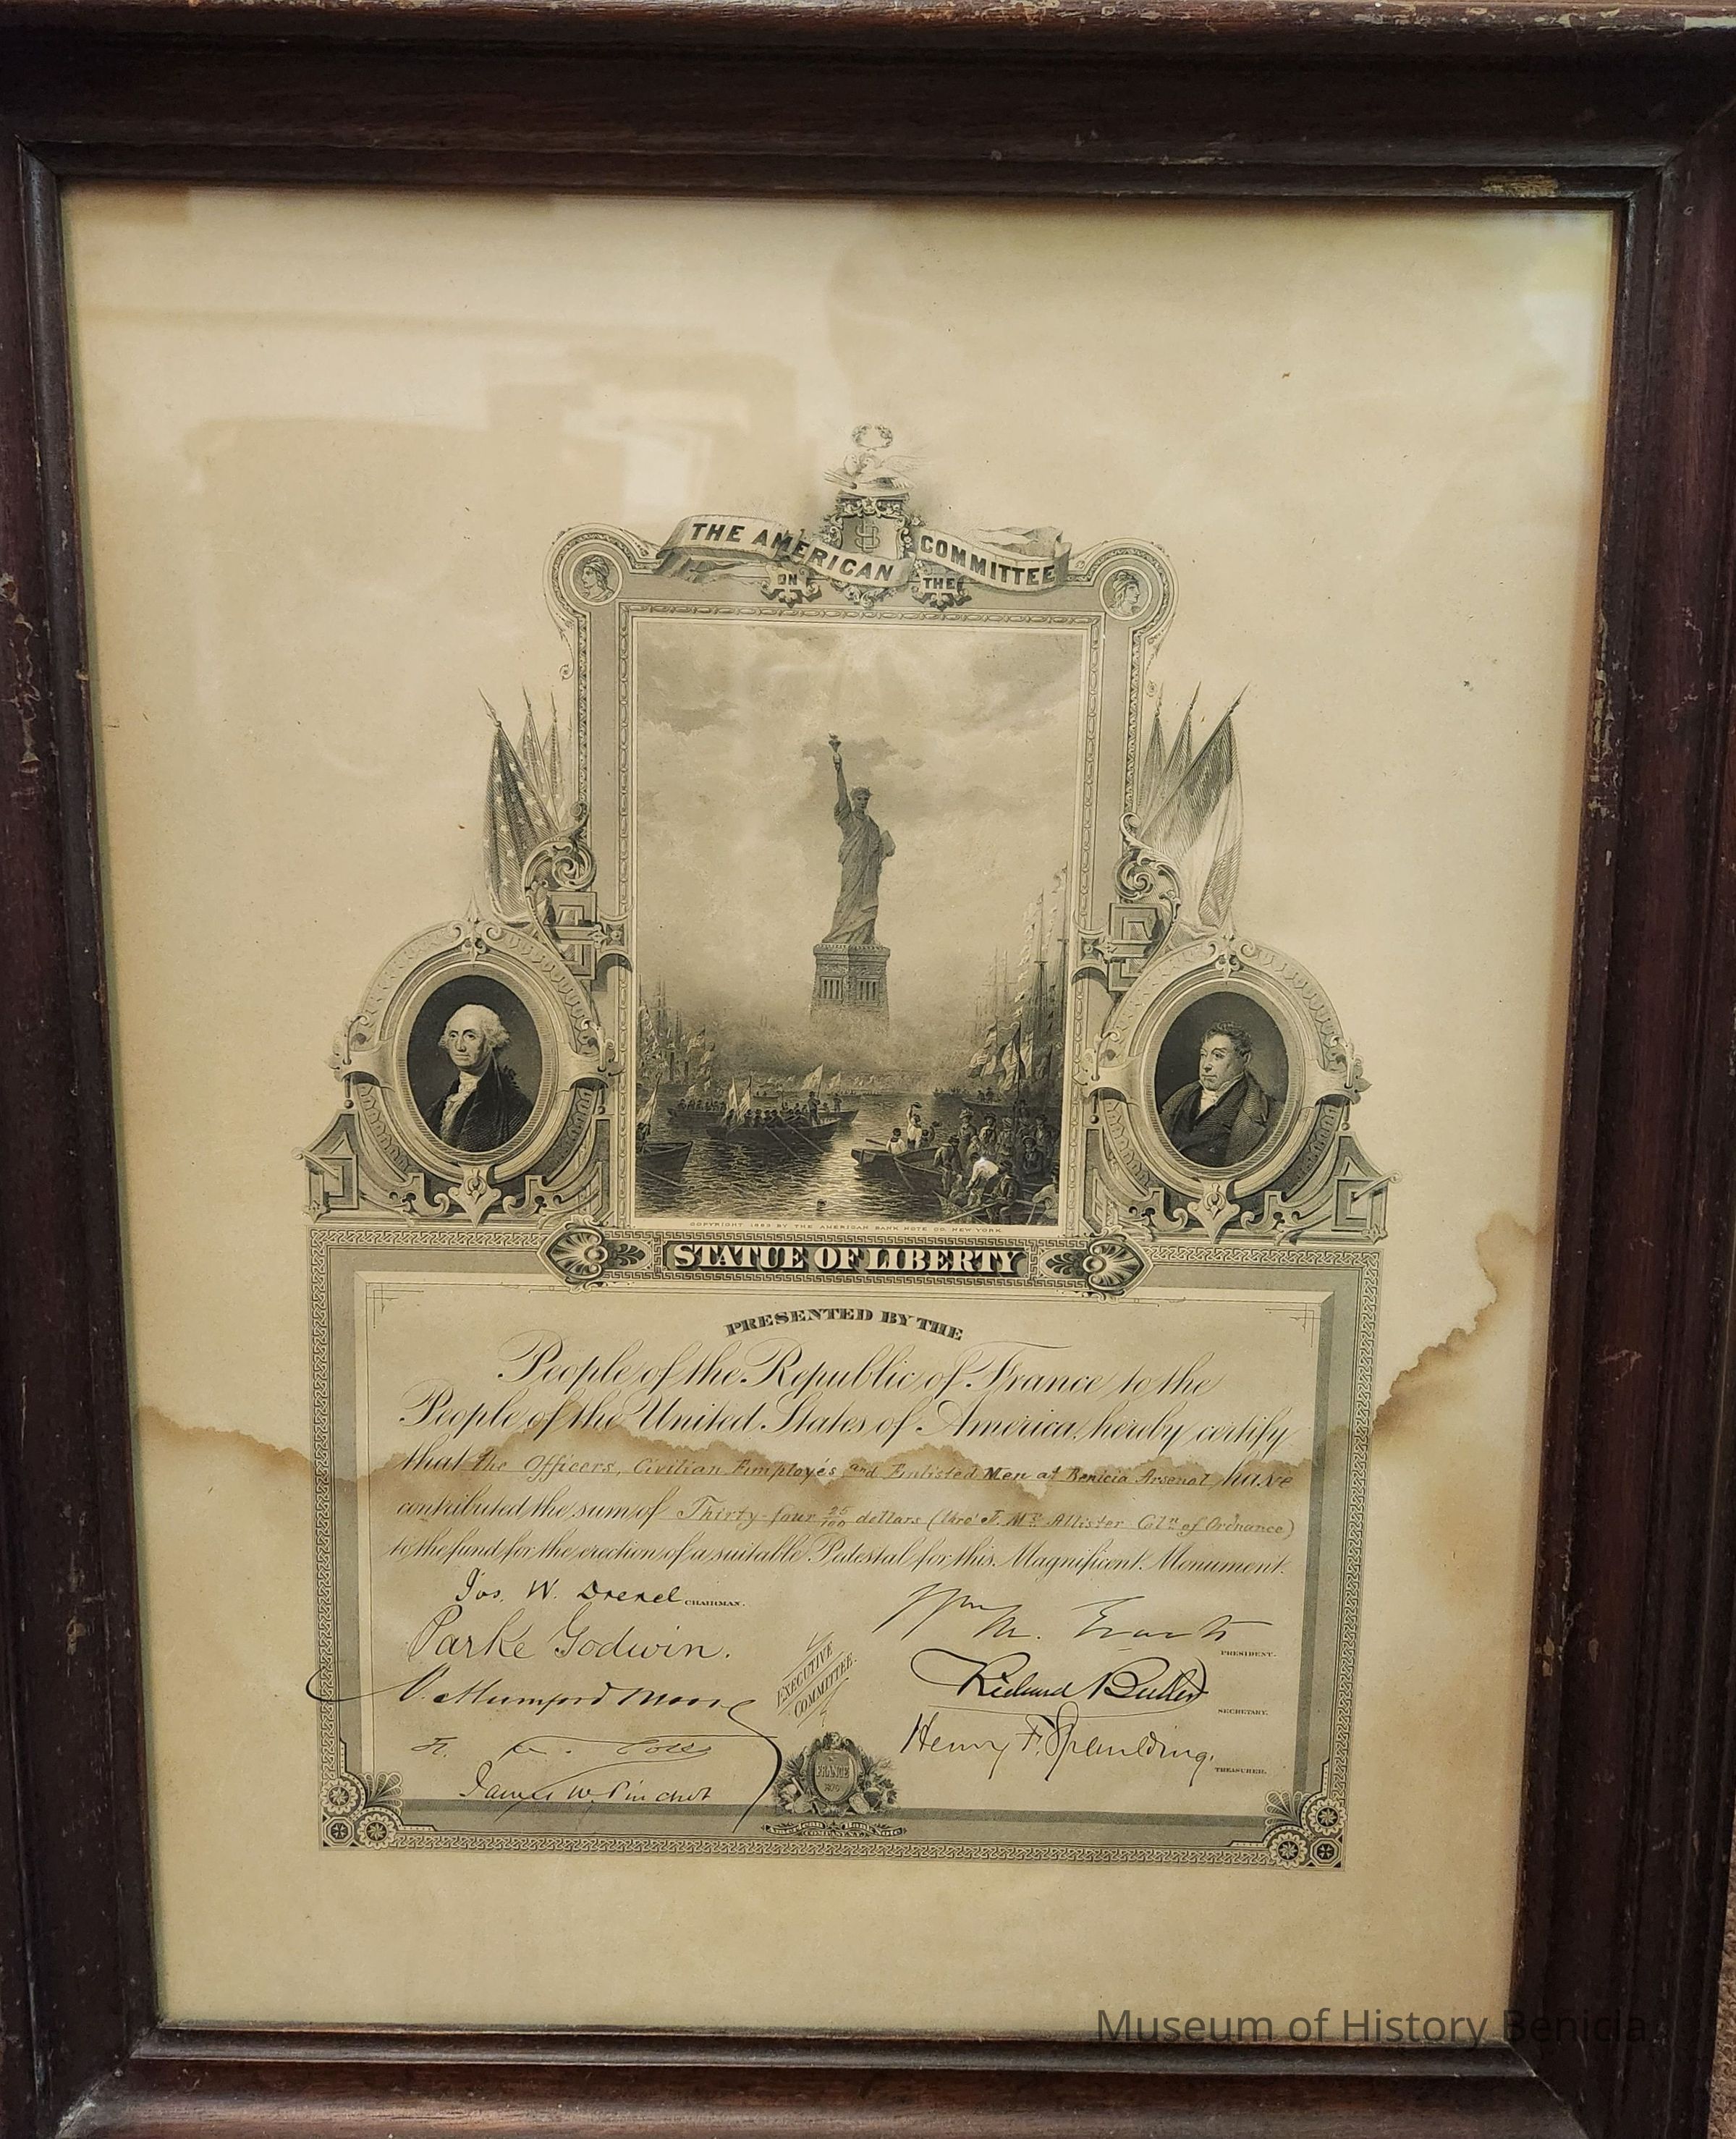 THE AMERICAN COMMITTEE
ON THE
COPYRIGHT 1883 BY THE AMERICAN BANK NOTE CO. NEW YORK
STATUE OF LIBERTY
PRESENTED BY THE
People of the Republic of France to the
People of the United States of America, hereby certify
that the Officers, Civilian Employés and Enlisted Men at Benicia Arsenal, have
contributed the sum of Thirty-four 25/100 dollars (thro' J. Mc Allister Col. of Ordnance)
to the fund for the erection of a suitable Pedestal for this Magnificent Monument.
Jos. W. Drexel CHAIRMAN.
Parke Godwin.
V. Mumford Moore
James W. Pinchot
EXECUTIVE
COMMITTEE.
Wm M. Evarts
PRESIDENT.
Richard Butler
SECRETARY.
Henry F. Spaulding.
TREASURER.
FRANCE
American Bank Note
COMPANY
Museum of History Benicia